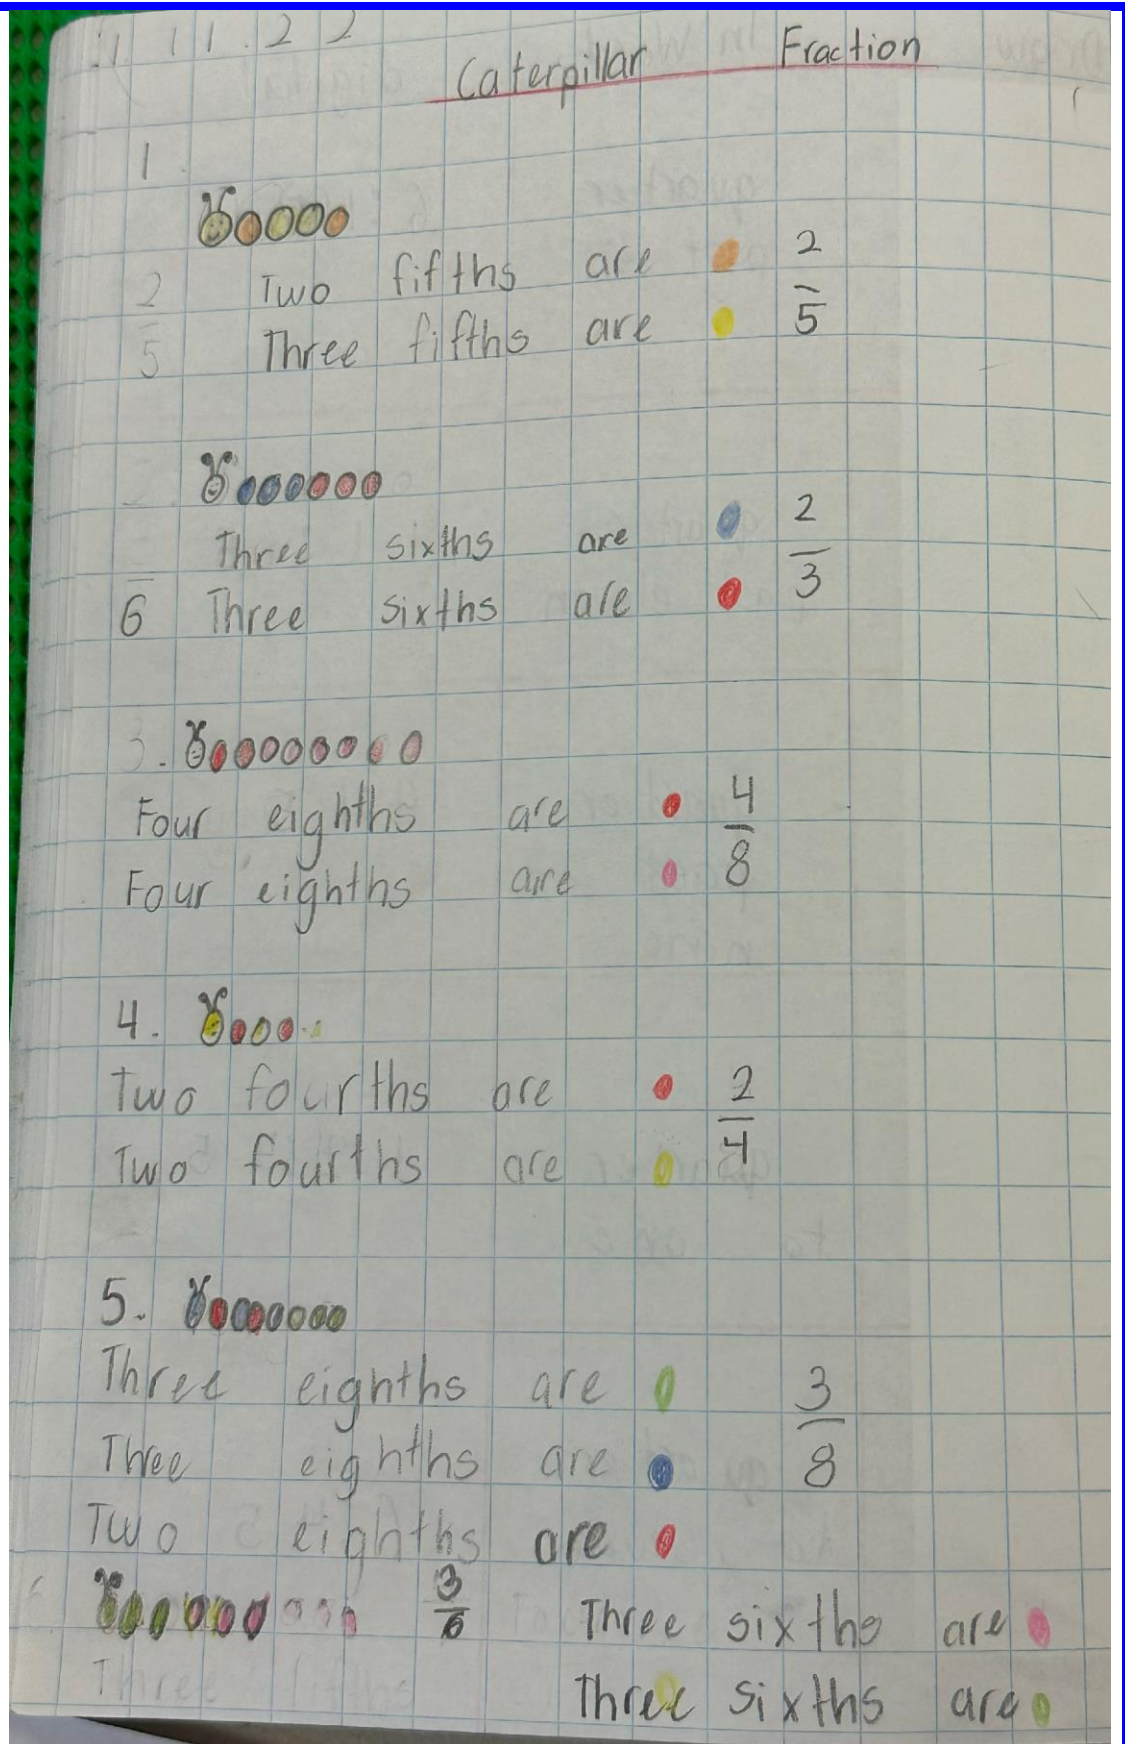 11.11.22
Caterpillar Fraction
1.
2/5 Two fifths are 2/5
Three fifths are
Three sixths are 2/3
6 Three sixths are
3.
Four eighths are 4/8
Four eighths are
4.
Two fourths are 2/4
Two fourths are
5.
Three eighths are 3/8
Three eighths are
Two eighths are
3/6 Three sixths are
Three Three sixths are